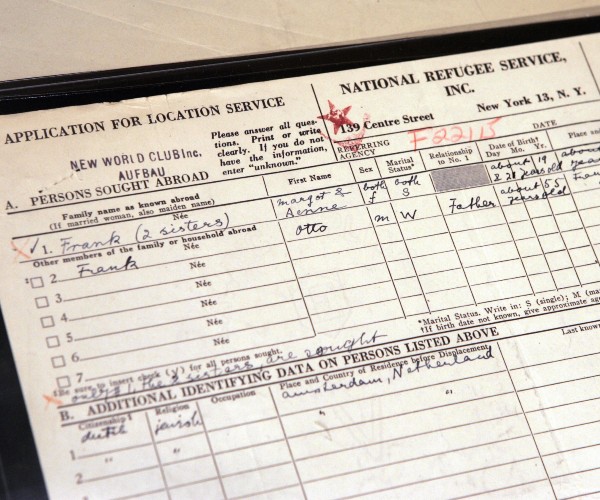 APPLICATION FOR LOCATION SERVICE
NEW WORLD CLUB Inc.
AUFBAU
Please answer all ques-
tions. Print or write
clearly. If you do not
have the information,
enter "unknown."
NATIONAL REFUGEE SERVICE,
INC.
139 Centre Street
New York 13, N. Y.
F22115
REFERRING
AGENCY
DATE
A. PERSONS SOUGHT ABROAD
Family name as known abroad
(If married woman, also maiden name)
First Name
Sex
Marital
Status*
Relationship
to No. 1
Date of Birth†
Day Mo. Yr.
Née
✓ 1. Frank (2 sisters)
margot &
both
f
both
S
about 19
& 21 years old
Other members of the family or household abroad
2 Frank
Née
Otto
m
W
Father
about 55
years old
3
Née
4
Née
5
Née
6
Née
7
Née
*Marital Status. Write in: S (single); M (
†If birth date not known, give approximate
Be sure to insert check (√) for all persons sought.
only the 2 sisters, are sought
B. ADDITIONAL IDENTIFYING DATA ON PERSONS LISTED ABOVE
Citizenship
Religion
Occupation
Place and Country of Residence before Displacement
Last known
1
dutch
jewish
amsterdam, Netherland
2
"
"
"
"
3
4